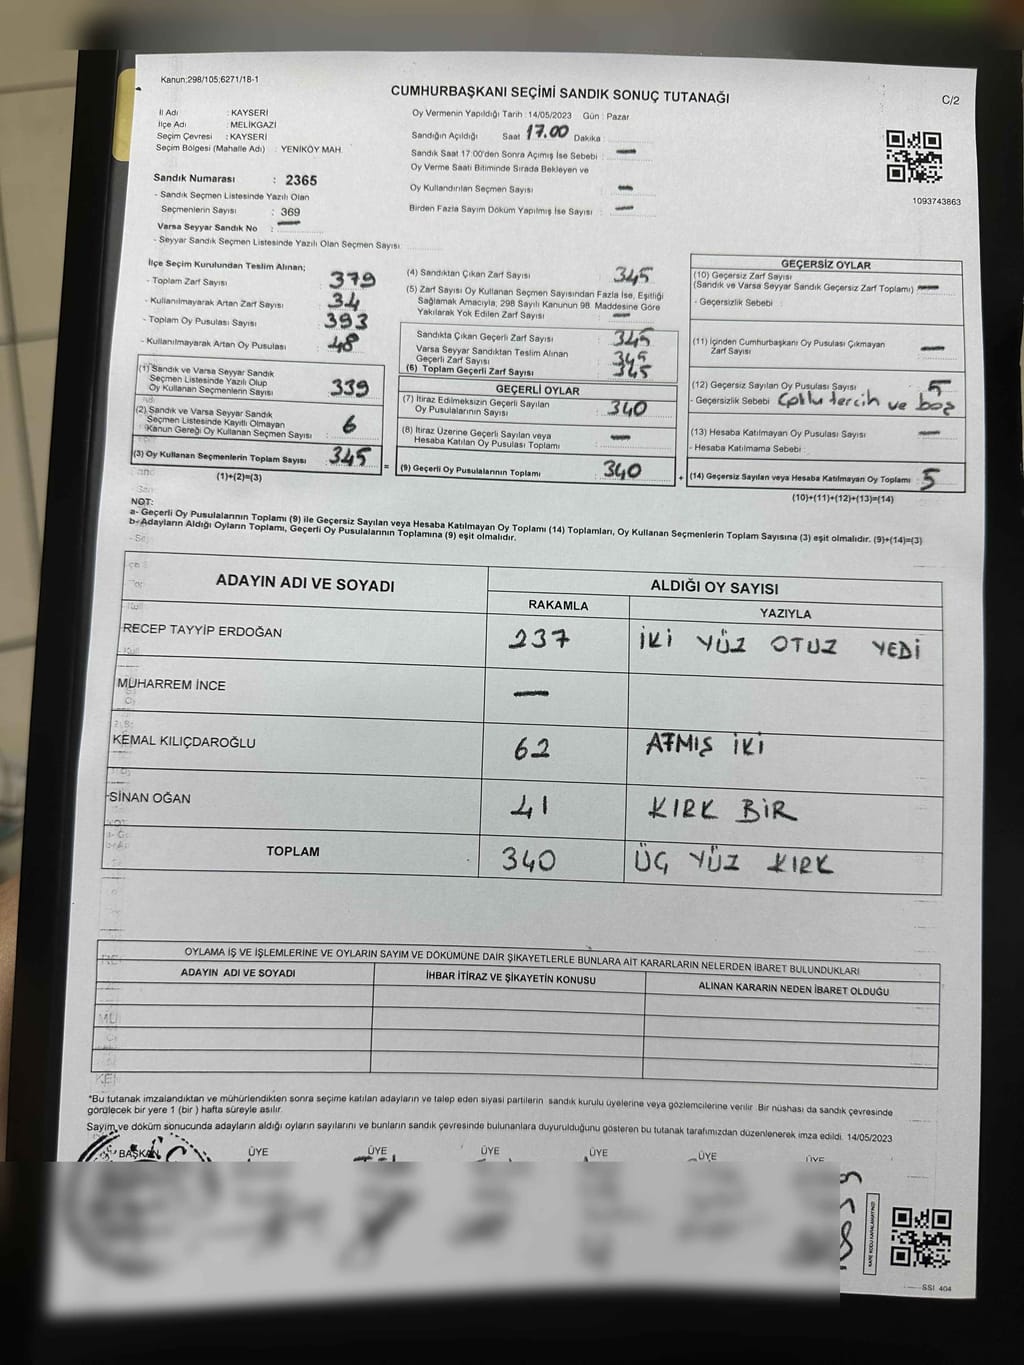 Kanun:298/105;6271/18-1
CUMHURBAŞKANI SEÇİMİ SANDIK SONUÇ TUTANAĞI
C/2
İl Adı : KAYSERİ
İlçe Adı : MELİKGAZİ
Seçim Çevresi : KAYSERİ
Seçim Bölgesi (Mahalle Adı) : YENİKÖY MAH.
Oy Vermenin Yapıldığı Tarih : 14/05/2023 Gün : Pazar
Sandığın Açıldığı Saat 17.00 Dakika
Sandık Saat 17:00'den Sonra Açımış İse Sebebi : —
Oy Verme Saati Bitiminde Sırada Bekleyen ve
Oy Kullandırılan Seçmen Sayısı : —
Birden Fazla Sayım Döküm Yapılmış İse Sayısı : —
1093743863
Sandık Numarası : 2365
- Sandık Seçmen Listesinde Yazılı Olan
Seçmenlerin Sayısı : 369
Varsa Seyyar Sandık No : —
- Seyyar Sandık Seçmen Listesinde Yazılı Olan Seçmen Sayısı
İlçe Seçim Kurulundan Teslim Alınan;
- Toplam Zarf Sayısı : 379
- Kullanılmayarak Artan Zarf Sayısı : 34
- Toplam Oy Pusulası Sayısı : 393
- Kullanılmayarak Artan Oy Pusulası : 48
(1) Sandık ve Varsa Seyyar Sandık
Seçmen Listesinde Yazılı Olup
Oy Kullanan Seçmenlerin Sayısı : 339
(2) Sandık ve Varsa Seyyar Sandık
Seçmen Listesinde Kayıtlı Olmayan
Kanun Gereği Oy Kullanan Seçmen Sayısı : 6
(3) Oy Kullanan Seçmenlerin Toplam Sayısı : 345
(1)+(2)=(3)
(4) Sandıktan Çıkan Zarf Sayısı : 345
(5) Zarf Sayısı Oy Kullanan Seçmen Sayısından Fazla İse, Eşitliği
Sağlamak Amacıyla; 298 Sayılı Kanunun 98. Maddesine Göre
Yakılarak Yok Edilen Zarf Sayısı : —
Sandıkta Çıkan Geçerli Zarf Sayısı : 345
Varsa Seyyar Sandıktan Teslim Alınan
Geçerli Zarf Sayısı : 345
(6) Toplam Geçerli Zarf Sayısı : 345
GEÇERLİ OYLAR
(7) İtiraz Edilmeksizin Geçerli Sayılan
Oy Pusulalarının Sayısı : 340
(8) İtiraz Üzerine Geçerli Sayılan veya
Hesaba Katılan Oy Pusulası Toplamı : —
(9) Geçerli Oy Pusulalarının Toplamı : 340
GEÇERSİZ OYLAR
(10) Geçersiz Zarf Sayısı
(Sandık ve Varsa Seyyar Sandık Geçersiz Zarf Toplamı) —
- Geçersizlik Sebebi :
(11) İçinden Cumhurbaşkanı Oy Pusulası Çıkmayan
Zarf Sayısı —
(12) Geçersiz Sayılan Oy Pusulası Sayısı : 5
- Geçersizlik Sebebi Çoklu tercih ve boş
(13) Hesaba Katılmayan Oy Pusulası Sayısı : —
- Hesaba Katılmama Sebebi :
(14) Geçersiz Sayılan veya Hesaba Katılmayan Oy Toplamı : 5
(10)+(11)+(12)+(13)=(14)
NOT:
a- Geçerli Oy Pusulalarının Toplamı (9) ile Geçersiz Sayılan veya Hesaba Katılmayan Oy Toplamı (14) Toplamları, Oy Kullanan Seçmenlerin Toplam Sayısına (3) eşit olmalıdır. (9)+(14)=(3)
b- Adayların Aldığı Oyların Toplamı, Geçerli Oy Pusulalarının Toplamına (9) eşit olmalıdır.
ADAYIN ADI VE SOYADI ALDIĞI OY SAYISI
RAKAMLA YAZIYLA
RECEP TAYYİP ERDOĞAN 237 İKİ YÜZ OTUZ YEDİ
MUHARREM İNCE —
KEMAL KILIÇDAROĞLU 62 ATMIŞ İKİ
SİNAN OĞAN 41 KIRK BİR
TOPLAM 340 ÜÇ YÜZ KIRK
OYLAMA İŞ VE İŞLEMLERİNE VE OYLARIN SAYIM VE DÖKÜMÜNE DAİR ŞİKAYETLERLE BUNLARA AİT KARARLARIN NELERDEN İBARET BULUNDUKLARI
ADAYIN ADI VE SOYADI İHBAR İTİRAZ VE ŞİKAYETİN KONUSU ALINAN KARARIN NEDEN İBARET OLDUĞU
*Bu tutanak imzalandıktan ve mühürlendikten sonra seçime katılan adayların ve talep eden siyasi partilerin sandık kurulu üyelerine veya gözlemcilerine verilir. Bir nüshası da sandık çevresinde
görülecek bir yere 1 (bir ) hafta süreyle asılır.
Sayım ve döküm sonucunda adayların aldığı oyların sayılarını ve bunların sandık çevresinde bulunanlara duyurulduğunu gösteren bu tutanak tarafımızdan düzenlenerek imza edildi. 14/05/2023
BAŞKAN ÜYE ÜYE ÜYE ÜYE ÜYE ÜYE
SSİ 404